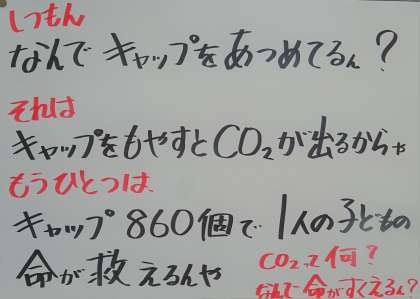 しつもん
なんで キャップを あつめてるん？
それは
キャップをもやすとCO₂が出るからや
もうひとつは、
キャップ 860個で 1人の子どもの
命が救えるんや
CO₂って何？
なんで命がすくえるん？